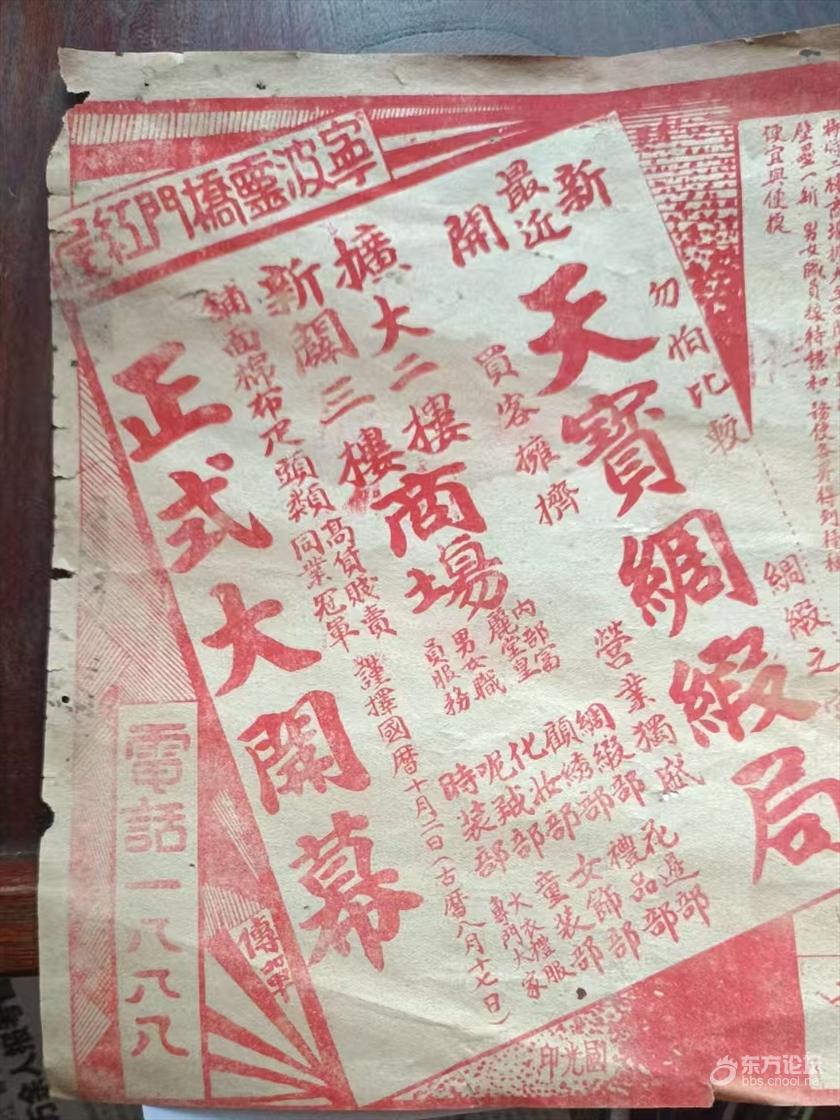 寧波靈橋門紅
壁壘一新 男女職員接待
便宜與
綢緞之
新
最近
開
勿怕比較
天寶綢緞局
買客擁擠
營業獨盛
擴大二樓
新闢三樓
商場
內部富
麗堂皇
男女職
員服務
綢緞部
顧綉部
化妝部
呢羢部
時裝部
花邊部
禮品部
女飾部
童裝部
大衣禮服
專門大家
鋪面棉布疋頭類同業冠軍
高貨賤賣
謹擇國曆十月二日(古曆八月十七日)
正式大開幕
電話一八八八
傳單
國光印
东方论坛
bbs.cnool.net